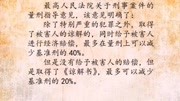 最高人民法院关于刑事案件的
量刑指导意见,该意见明确了:
除了特别严重的犯罪之外,取得
了被害人的谅解的,同时给予被害人
进行经济赔偿,最多在量刑上可以减
少基准刑的 40%。
但是没有给予被害人的赔偿,但
是取得了《谅解书》,最多可以减少
基准刑的 20%。